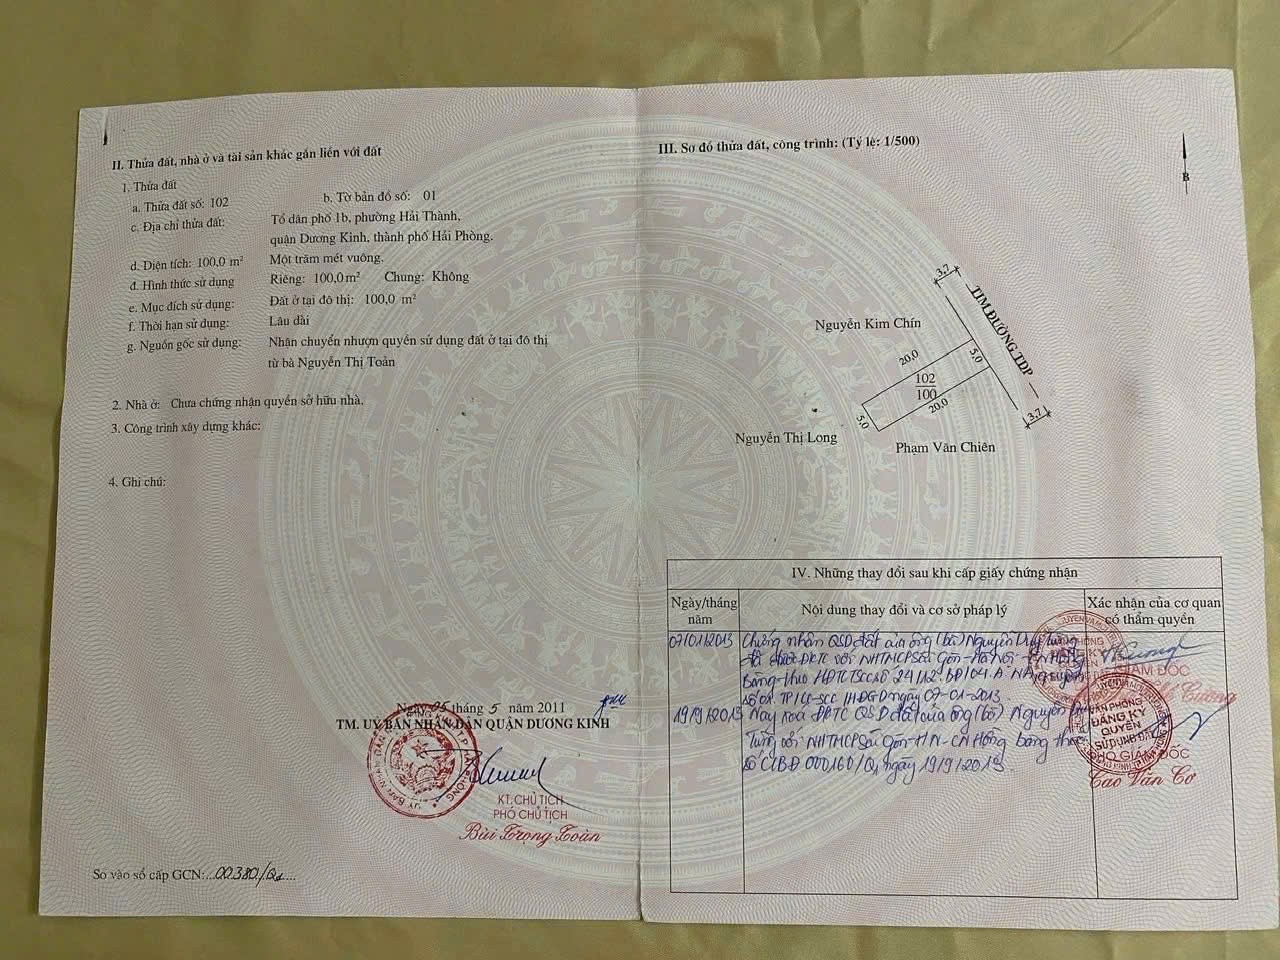 II. Thửa đất, nhà ở và tài sản khác gắn liền với đất
1. Thửa đất
a. Thửa đất số: 102 b. Tờ bản đồ số: 01
c. Địa chỉ thửa đất: Tổ dân phố 1b, phường Hải Thành,
quận Dương Kinh, thành phố Hải Phòng.
d. Diện tích: 100,0 m² Một trăm mét vuông.
đ. Hình thức sử dụng Riêng: 100,0 m² Chung: Không
e. Mục đích sử dụng: Đất ở tại đô thị: 100,0 m²
f. Thời hạn sử dụng: Lâu dài
g. Nguồn gốc sử dụng: Nhận chuyển nhượn quyền sử dụng đất ở tại đô thị
từ bà Nguyễn Thị Toản
2. Nhà ở: Chưa chứng nhận quyền sở hữu nhà.
3. Công trình xây dựng khác:
4. Ghi chú:
Ngày 05 tháng 5 năm 2011
TM. UỶ BAN NHÂN DÂN QUẬN DƯƠNG KINH
KT. CHỦ TỊCH
PHÓ CHỦ TỊCH
Bùi Trọng Toàn
Số vào sổ cấp GCN:...00380/Qđ....
III. Sơ đồ thửa đất, công trình: (Tỷ lệ: 1/500)
B
3,7
TIM ĐƯỜNG TDP
Nguyễn Kim Chín
20,0
5,0
102
100
20,0
5,0
3,7
Nguyễn Thị Long
Phạm Văn Chiên
IV. Những thay đổi sau khi cấp giấy chứng nhận
Ngày/tháng năm
Nội dung thay đổi và cơ sở pháp lý
Xác nhận của cơ quan có thẩm quyền
07/01/2013 Chứng nhận QSD đất của ông (bà) Nguyễn Duy Tùng
đã được ĐKTC với NHTMCP Sài Gòn - Hà Nội - CN Hồng
Bàng theo HĐTCTSCC số 241/12.
số 01. TP/CC-SCC /HĐGD ngày 07-01-2013.
19/9/2013 Nay xoá ĐKTC QSD đất của ông (bà) Nguyễn Duy
Tùng với NHTMCP Sài Gòn-HN-CN Hồng Bàng theo
số CIBĐ 000160/Q, ngày 19/9/2013.
GIÁM ĐỐC
Cường
VĂN PHÒNG
ĐĂNG KÝ
QUYỀN
SỬ DỤNG ĐẤT
PHÓ GIÁM ĐỐC
Cao Văn Cơ